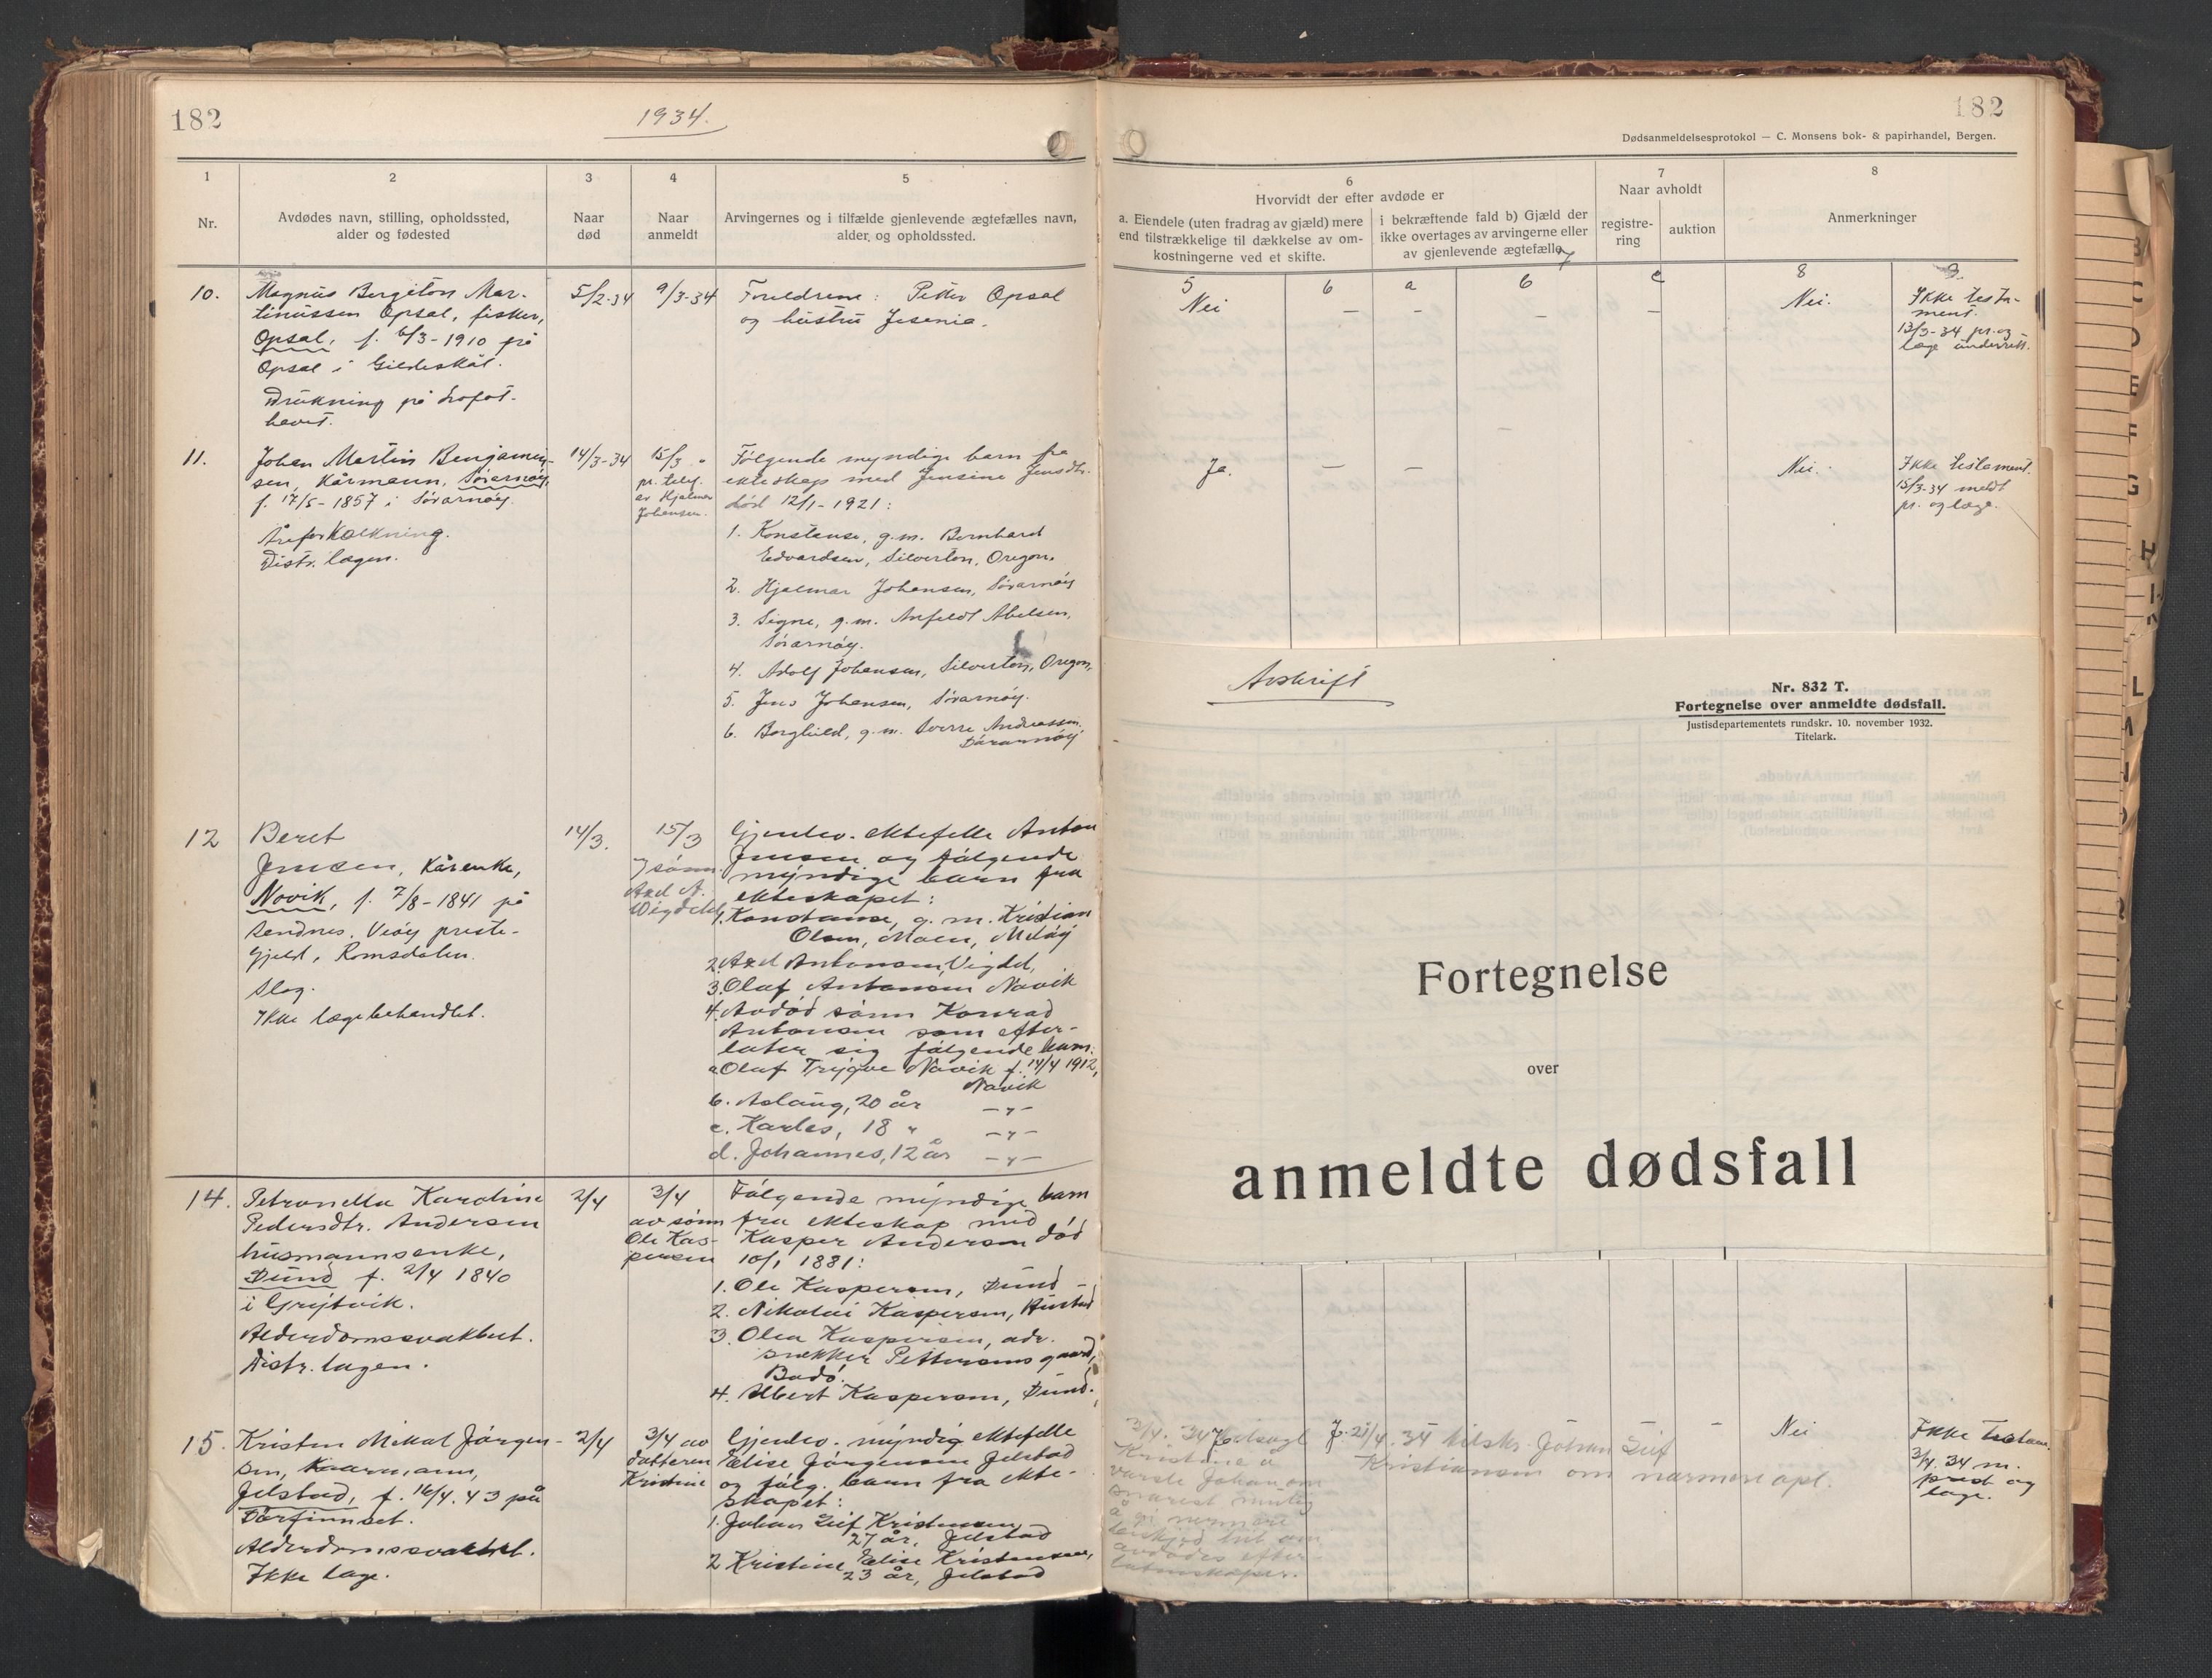 182
1934.
1
2
3
4
5
Nr.
Avdødes navn, stilling, opholdssted,
alder og fødested
Naar
død
Naar
anmeldt
Arvingernes og i tilfælde gjenlevende ægtefælles navn,
alder og opholdssted.
10.
Magnus Bergiton Mar-
tinussen Opsal, fisker,
Opsal, f. 6/3-1910 på
Opsal i Gildeskål.
Drukning på Lofot-
havet.
5/2-34
9/3-34
Foreldrene: Petter Opsal
og hustru Jesenia.
11.
Johan Martin Benjamin-
sen, Kårmann, Sørarnøy,
f. 17/5-1857 i Sørarnøy.
Åreforkalkning.
Distr. lægen.
14/3-34
15/3 "
pr. telef.
av Hjalmar
Johansen.
Følgende myndige barn fra
ekteskap med Jensine Jensdtr.
død 12/1-1921:
1. Konstanse, g.m. Bernhard
Edvardsen, Silverton, Oregon.
2. Hjalmar Johansen, Sørarnøy
3. Signe, g.m. Anfeldt Abelsen,
Sørarnøy.
4. Adolf Johansen, Silverton, Oregon,
5. Jens Johansen, Sørarnøy.
6. Borghild, g.m. Sverre Andreassen.
Sørarnøy
12
Beret
Jensen, Kårenke,
Novik, f. 7/8-1841 på
Sendnes, Veøy preste-
gjeld, Romsdalen.
Slag.
Ikke lægebehandlet.
14/3.
15/3
sønn
Axel A.
Vigdel
Gjenlev. ektefelle Anton
Jensen og følgende
myndige barn fra
ekteskapet:
1. Konstanse, g. m. Kristian
Olsen, Moen, Meløy
2. Axel Antonsen, Vigdel,
3. Olaf Antonsen Novik
4. Avdød sønn Konrad
Antonsen som efter-
later sig følgende barn:
a. Olaf Trygve Novik f. 14/4 1912,
Novik
b. Aslaug, 20 år —„—
c. Karles, 18 " —„—
d. Johannes, 12 år —„—
14.
Petronella Karoline
Pedersdtr. Andersen
husmannsenke,
Sund f. 2/4 1840
i Grytvik.
Alderdomssvakhet.
Distr. lægen.
2/4
3/4
av sønn
Ole Kas-
persen
Følgende myndige barn
fra ekteskap med
Kasper Andersen død
10/1 1881:
1. Ole Kaspersen, Sund
2. Nikolai Kaspersen, Hustad
3. Olea Kaspersen, adr.
snekker Pettersens gaard,
Bodø.
4. Albert Kaspersen, Sund.
15.
Kristen Mikal Jørgen-
sen, Kaarmann,
Jelstad, f. 16/4. 43 på
Torfinnset.
Alderdomssvakhet.
Ikke læge.
2/4
3/4 av
datteren
Kristine
Gjenlev. myndig ektefelle
Elise Jørgensen Jelstad
og følg. barn fra ekte-
skapet:
1. Johan Leif Kristensen
27 år, Jelstad
2. Kristine Elise Kristensen,
23 år, Jelstad
182
Dødsanmeldelsesprotokol — C. Monsens bok- & papirhandel, Bergen.
6
Hvorvidt der efter avdøde er
7
Naar avholdt
8
a. Eiendele (uten fradrag av gjæld) mere
end tilstrækkelige til dækkelse av om-
kostningerne ved et skifte.
i bekræftende fald b) Gjæld der
ikke overtages av arvingerne eller
av gjenlevende ægtefælle
registre-
ring
auktion
Anmerkninger
5 6 a 6 c 8 9.
7
Nei — — — — Nei.
Ikke testa-
ment.
13/3-34 pr. og
læge underrett.
Ja. — — Nei.
Ikke testament.
15/3-34 meldt
pr. og læge.
Avskrift
Nr. 832 T.
Fortegnelse over anmeldte dødsfall.
Justisdepartementets rundskr. 10. november 1932.
Titelark.
Fortegnelse
over
anmeldte dødsfall
3/4. 34
Kristine å
varsle Johan om
snarest mulig
å gi nærmere
beskjed hit om
avdødes efter-
latenskaper.
21/4. 34 tilskr. Johan Leif
Kristiansen om nærmere opl.
-
Nei
Ikke Testam.
3/4. 34 m.
prest og
læge.
B
C
D
E
F
G
H
I-
K
L